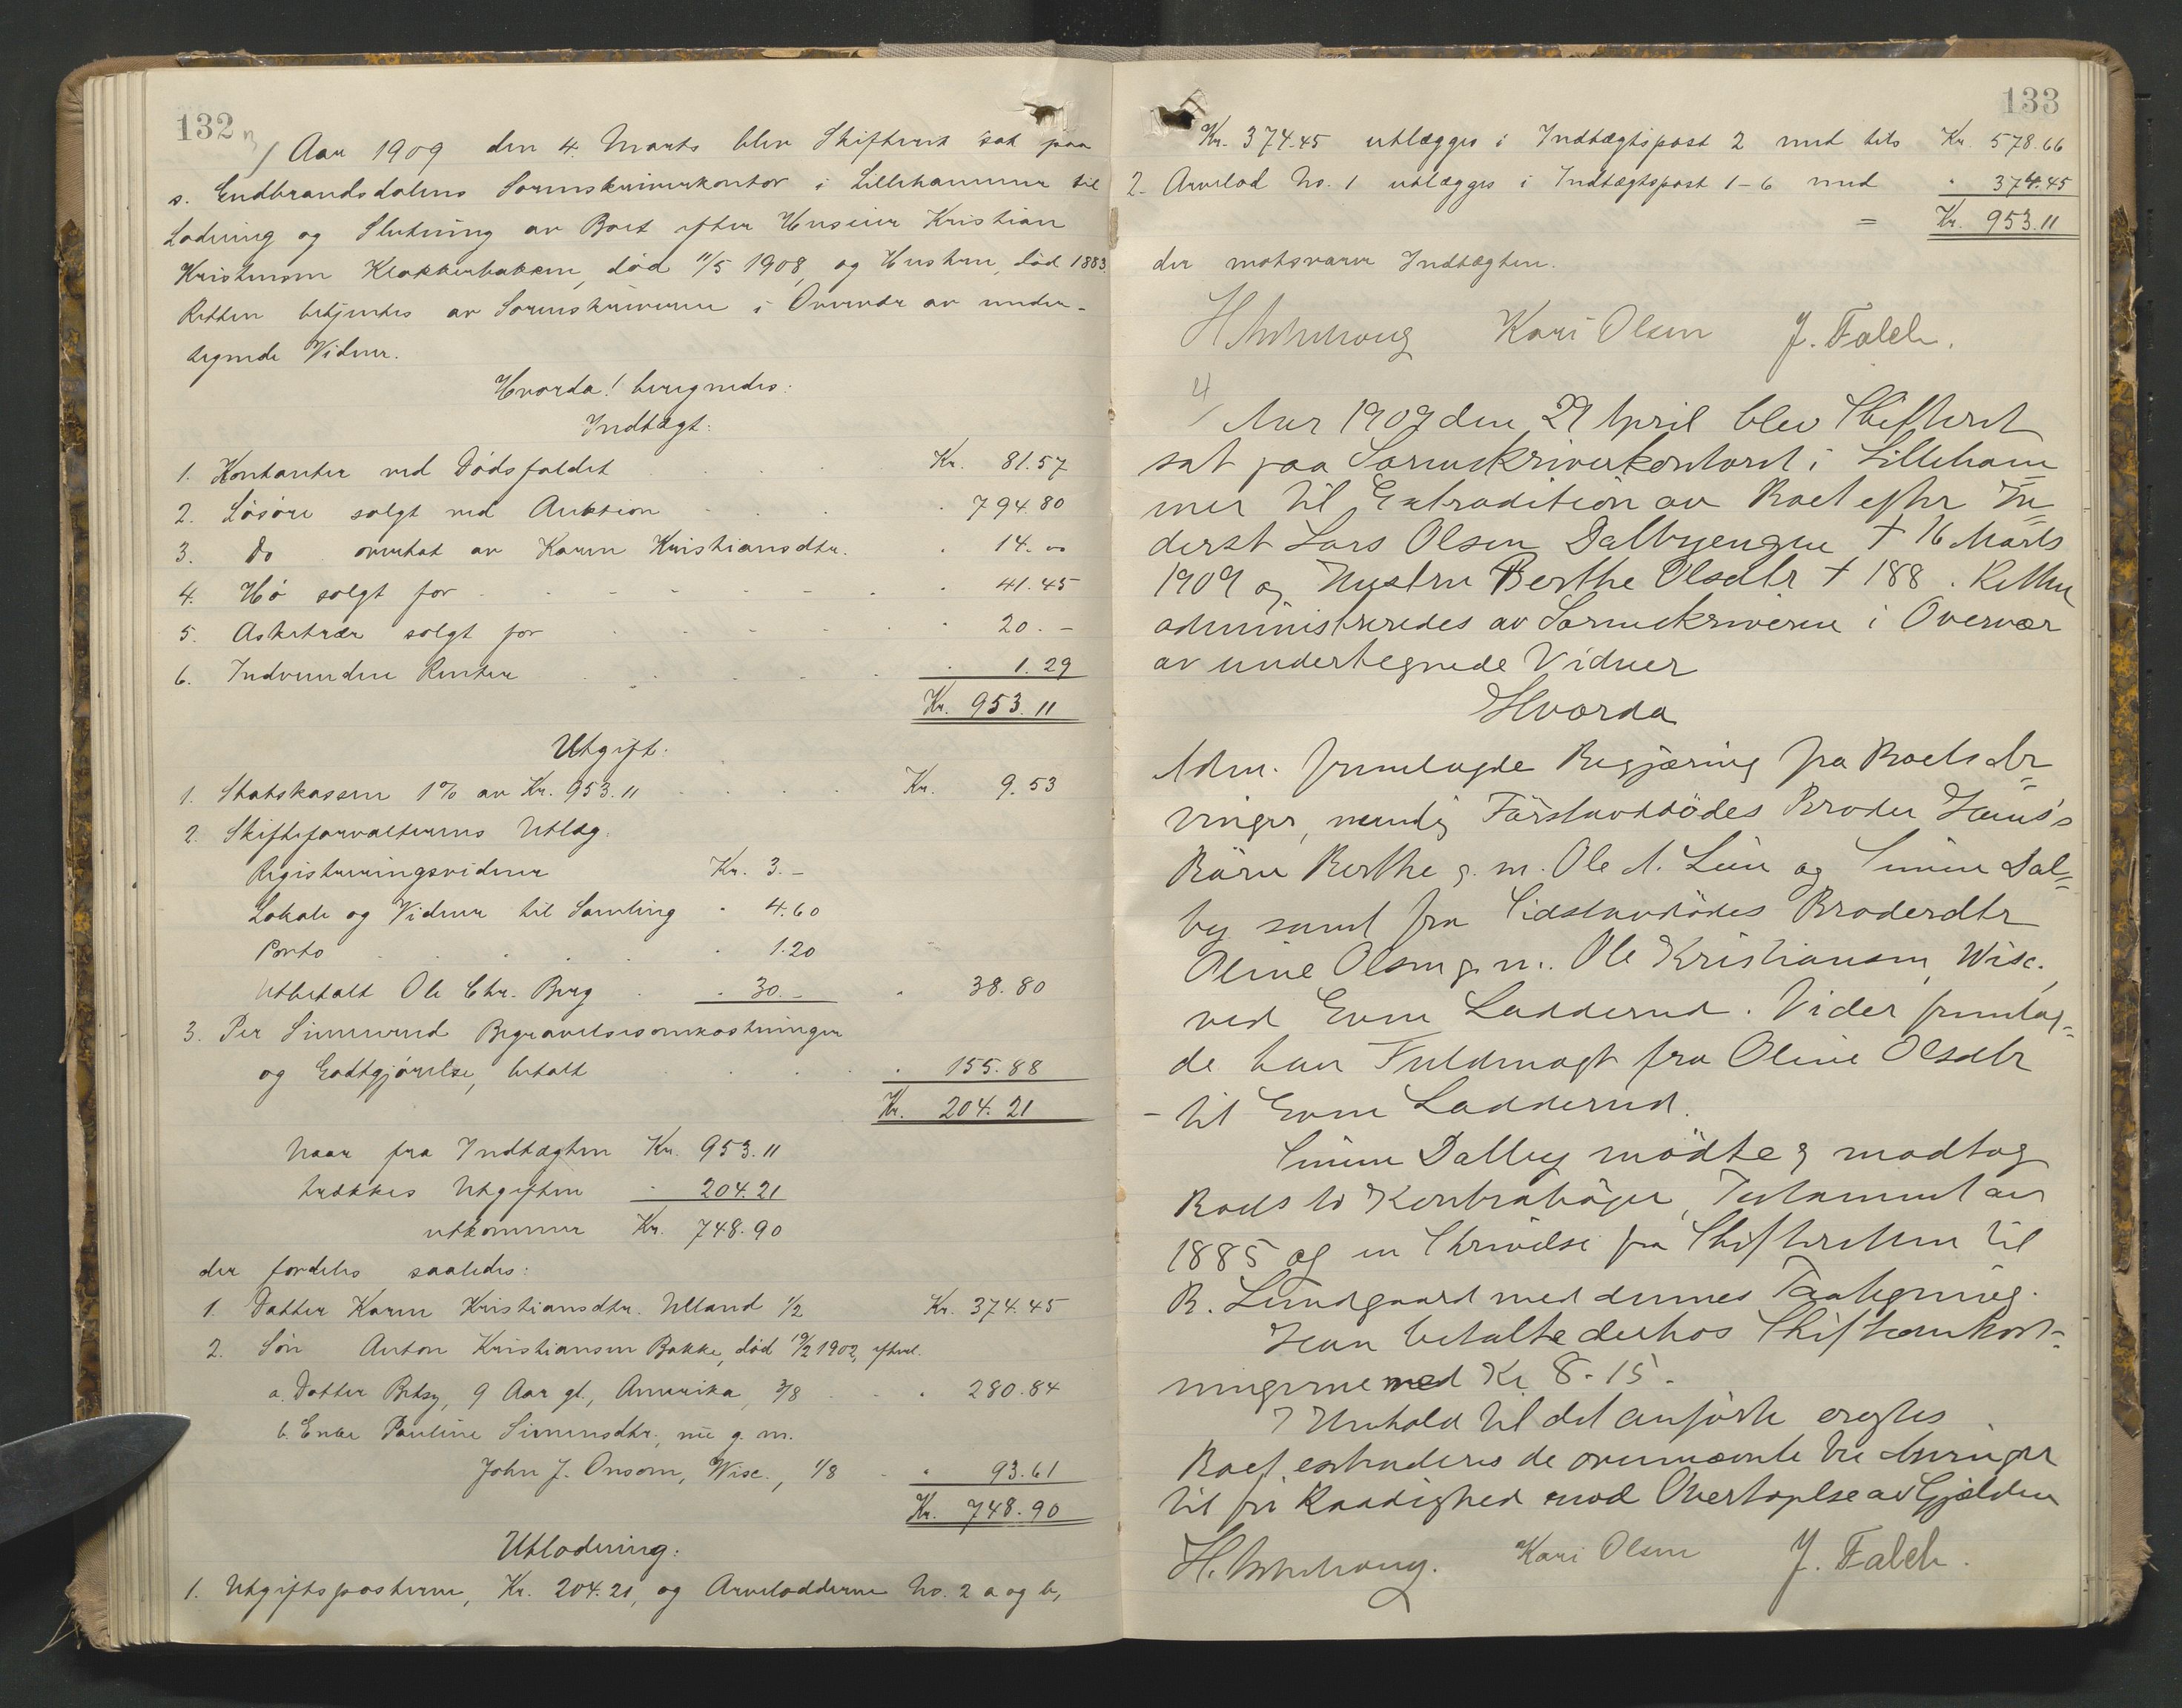 132
Aar 1909 den 4. Marts blev Skifteret sat paa
s. Gudbrandsdalens Sorenskriverkontor i Lillehammer til
Lodning og Slutning av Boet efter Huseier Kristian
Kristensen Klokkerbakken, død 11/5 1908, og Hustru, død 1883.
Retten betjentes av Sorenskriveren i Overvær av under-
tegnede Vidner.
Hvorda! beregnedes:
Indtægt:
1. Kontanter ved Dødsfaldet Kr. 81.57
2. Løsøre solgt ved Auktion 794.80
3. Do overtat av Karen Kristiansdtr. 14.00
4. Hø solgt for 41.45
5. Asketrær solgt for 20.-
6. Indvundne Renter 1.29
Kr. 953.11
Utgift:
1. Statskassen 1% av Kr. 953.11 Kr. 9.53
2. Skifteforvalterens Utlæg:
Registreringsvidner Kr. 3.-
Lokale og Vidner til Samling 4.60
Porto 1.20
Utbetalt Ole Chr. Berg 30.- 38.80
3. Per Simenrud Begravelsesomkostninger
og Godtgjørelse, betalt 155.88
Kr. 204.21
Naar fra Indtægten Kr. 953.11
trækkes Utgiften 204.21
utkommer Kr. 748.90
der fordeles saaledes:
1. Datter Karen Kristiansdtr. Ulland 1/2 Kr. 374.45
2. Søn Anton Kristiansen Bakke, død 19/2 1902, efterl.
a. Datter Betsy, 9 Aar gl., Amerika, 3/8 280.84
b. Enke Pauline Simensdtr., nu g. m.
John J. Onsom, Wisc., 1/8 93.61
Kr. 748.90
Utlodning:
1. Utgiftsposterne, Kr. 204.21, og Arvelodderne No. 2 a og b,
133
Kr. 374.45 utlægges i Indtægtspost 2 med tils Kr. 578.66
2. Arvelod No. 1 utlægges i Indtægtspost 1-6 med 374.45
= Kr. 953.11
der motsvarer Indtægten.
Kari Olsen J. Falch.
4/ Aar 1909 den 29 April blev Skifteret
sat paa Sorenskriverkontoret i Lilleham
mer til Extradition av Boet efter In=
derst Lars Olsen Dalbyengen † 16 Marts
1909 og Hustru Berthe Olsdtr † 188 . Retten
administreredes av Sorenskriveren i Overvær
av undertegnede Vidner
Hvorda
Adm. fremlagde Begjæring fra Boets Ar=
vinger, nemlig Førstavdødes Broder Hans's
Børn Berthe g. m. Ole A. Lien og Simen Dal=
by samt fra Sidstavdødes Broderdtr
Oline Olsen g. m. Ole Kristiansen, Wisc.,
ved Even Ladderud. Vider fremlag=
de han Fuldmagt fra Oline Olsdtr
- til Even Ladderud.
Simen Dalby mødte og modtog
Boets to Kontrabøger, Testament av
1885 og en Skrivelse fra Skifteretten til
B. Lundgaard med dennes Paategning.
Han betalte derhos Skifteomkost-
ningerne med Kr. 8.15.
I Henhold til det anførte
Boet extraderes de ovennævnte tre Arvinger
til fri Raadighed mod Overtagelse av Gjælden
Kari Olsen J. Falch.